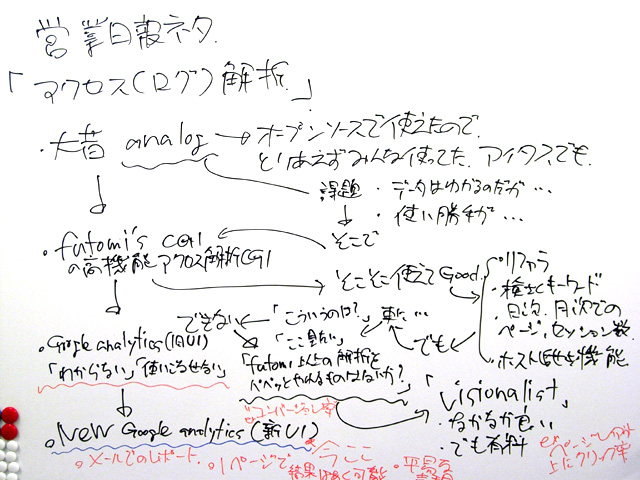 営業日報ネタ.
「アクセス(ログ)解析.」
・大昔 analog → オープンソースで使えたので.
とりあえずみんな使ってた. アイタスでも.
課題 ・データはわかるのだが…
・使い勝手が…
そこで
・futomi's CGI
の高機能アクセス解析CGI
そこそこ使えてGood.
・リファラ
・検索キーワード
・日次、月次での
ページ、セッション数.
・ホスト
機能
でも
また…
「こういうのは?」
「ここ見たい」
できない
「futomi以上の解析を
ものはないか?」
・Google analytics (旧UI)
「わからない」「使いこなせない」
exコンバージョン率
「Visionalist」
・なかなか良い
・でも有料
・New Google analytics (新UI)
今ここ
・メールでのレポート
・1ページで
結果 可能
ex ページ
上にクリック率